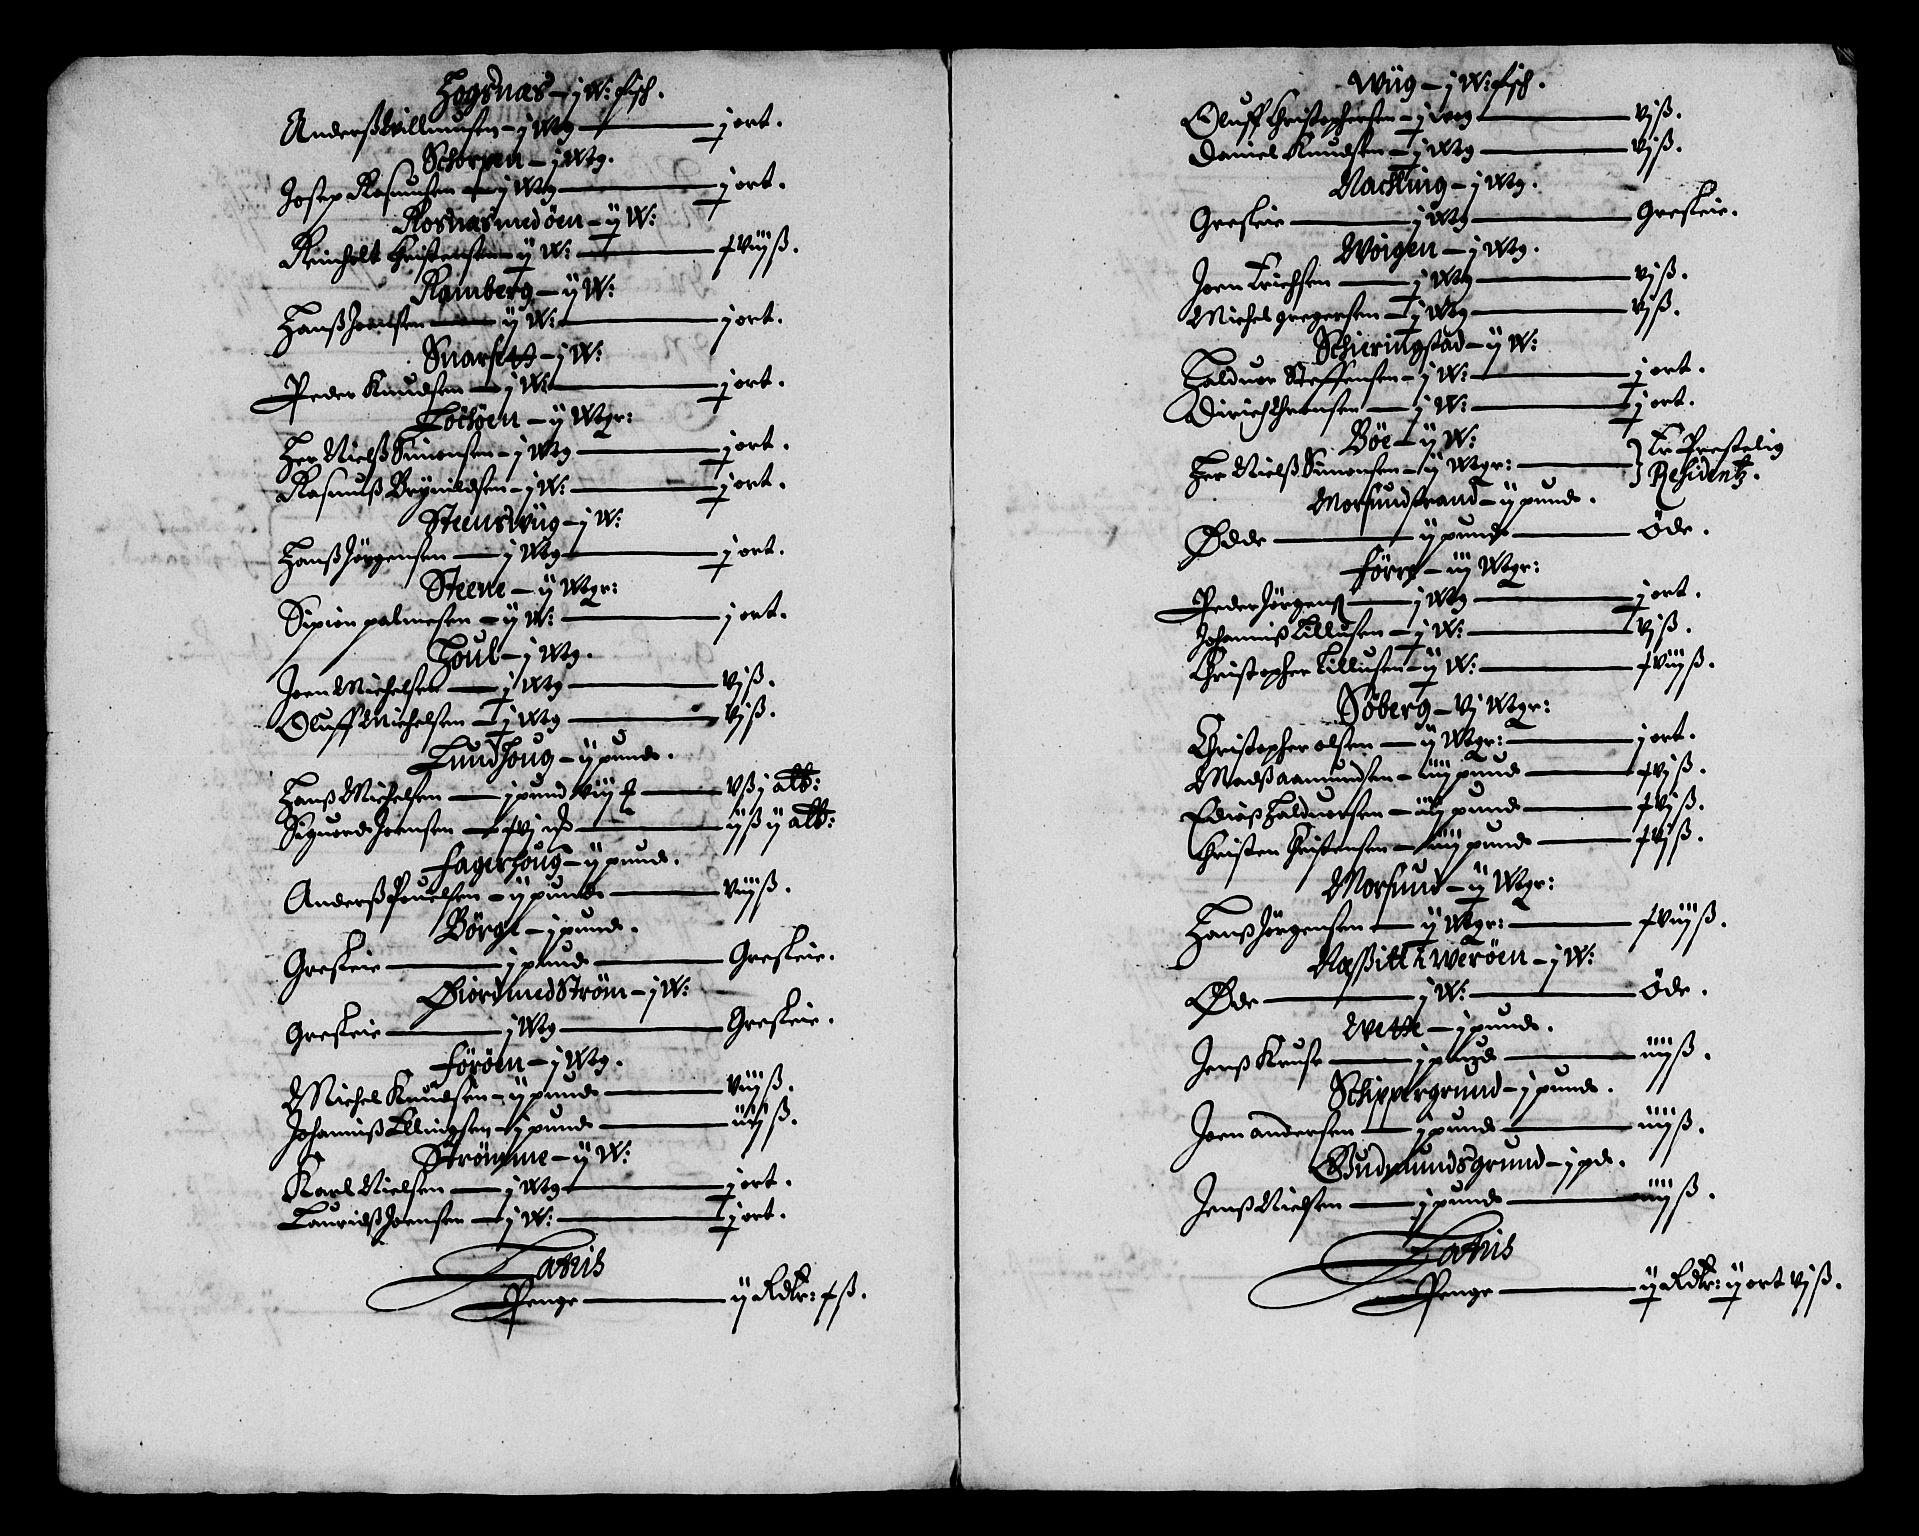 Hogsnæs – j W: fisch.
Anderß Willumsen – j Wtg — j ort.
Schorpen – j Wtg.
Josep Rasmusen – j Wtg — j ort.
Rosnæs med öen – ij W:
Reinholt Christensen – ij W: — viijß.
Ramberg – ij W:
Hanß Joensen — ij W: — j ort.
Snarsett – j W:
Peder Knudsen — j W: — j ort.
Locköen – ij Wtgr:
Her Nielß Simonsen – j Wtg — j ort.
Rasmuß Brynildsen – j W: — j ort.
Steenswiig – j W:
Hanß Jörgensen — j Wtg — j ort.
Steene – ij Wtgr:
Sixion palmesen – ij W: — j ort.
Houl – j Wtg.
Joen Michelsen — j Wtg — vjß.
Oluff Michelsen — j Wtg — vjß.
Lundhoug – ij punde.
Hanß Michelsen — j pund viij — vß j alb:
Siguord Joensen — xvj — ijß ij alb:
Fagerhoug – ij punde.
Anderß Pouelsen – ij punde — viijß.
Börge – j pund.
Greskeie — j pund — Greskeie.
Öiord med Ström – j W:
Greskeie — j Wtg — Greskeie.
Föröen – j Wtg.
Michel Knudsen – ij punde — viijß.
Johanniß Ellingsen – j pund — iiijß.
Strömme – ij W:
Karl Nielsen — j Wtg — j ort.
Lauridß Joensen – j W: — j ort.
Latus
Penge — ij Rdlr: xß.
Wiig – j W: fisch.
Oluff Christophersen – j wog — vjß.
Daniel Knudsen – j Wtg — vjß.
Nackling – j Wtg.
Greskeie — j Wtg — Greskeie.
Woigen – j Wtg.
Joen Erichsen — j Wtg — vjß.
Michel gregersen – j Wtg — vjß.
Schieringstad – ij W:
Halduor Steffensen – j W: — j ort.
Dirich Thronsen — j W: — j ort.
Böe – ij W:
Her Nielß Simonsen – ij Wtgr: — Er Prestelig
Residentz.
Morsundstrand – ij punde.
Ödde — ij punde — Öde.
Förre – iij Wtgr:
Peder Jörgenß — j Wtg — j ort.
Johanniß Tillusen – j W: — vjß.
Christopher Tillusen – ij W: — xviijß.
Söberg – vj Wtgr:
Christopher olsen — ij Wtgr: — j ort.
Madß aamundsen – iiij pund — xvjß.
Ediaß Halduorsen – iiij pund — xvjß.
Christen Christensen – iiij pund — xvjß.
Morsund – ij Wtgr:
Hanß Jörgensen — ij Wtgr: — xviijß.
Næßitt i Weröen – j W:
Öde — j W: — Öde.
Wette – j pund.
Jenß Kruse — j pund — iiijß.
Schippergrund – j pund.
Joen andersen — j pund — iiijß.
Gudmundsgrund – j pd.
Jenß Nielsen — j pund — iiijß.
Latus
Penge — ij Rdlr: ij ort vjß.